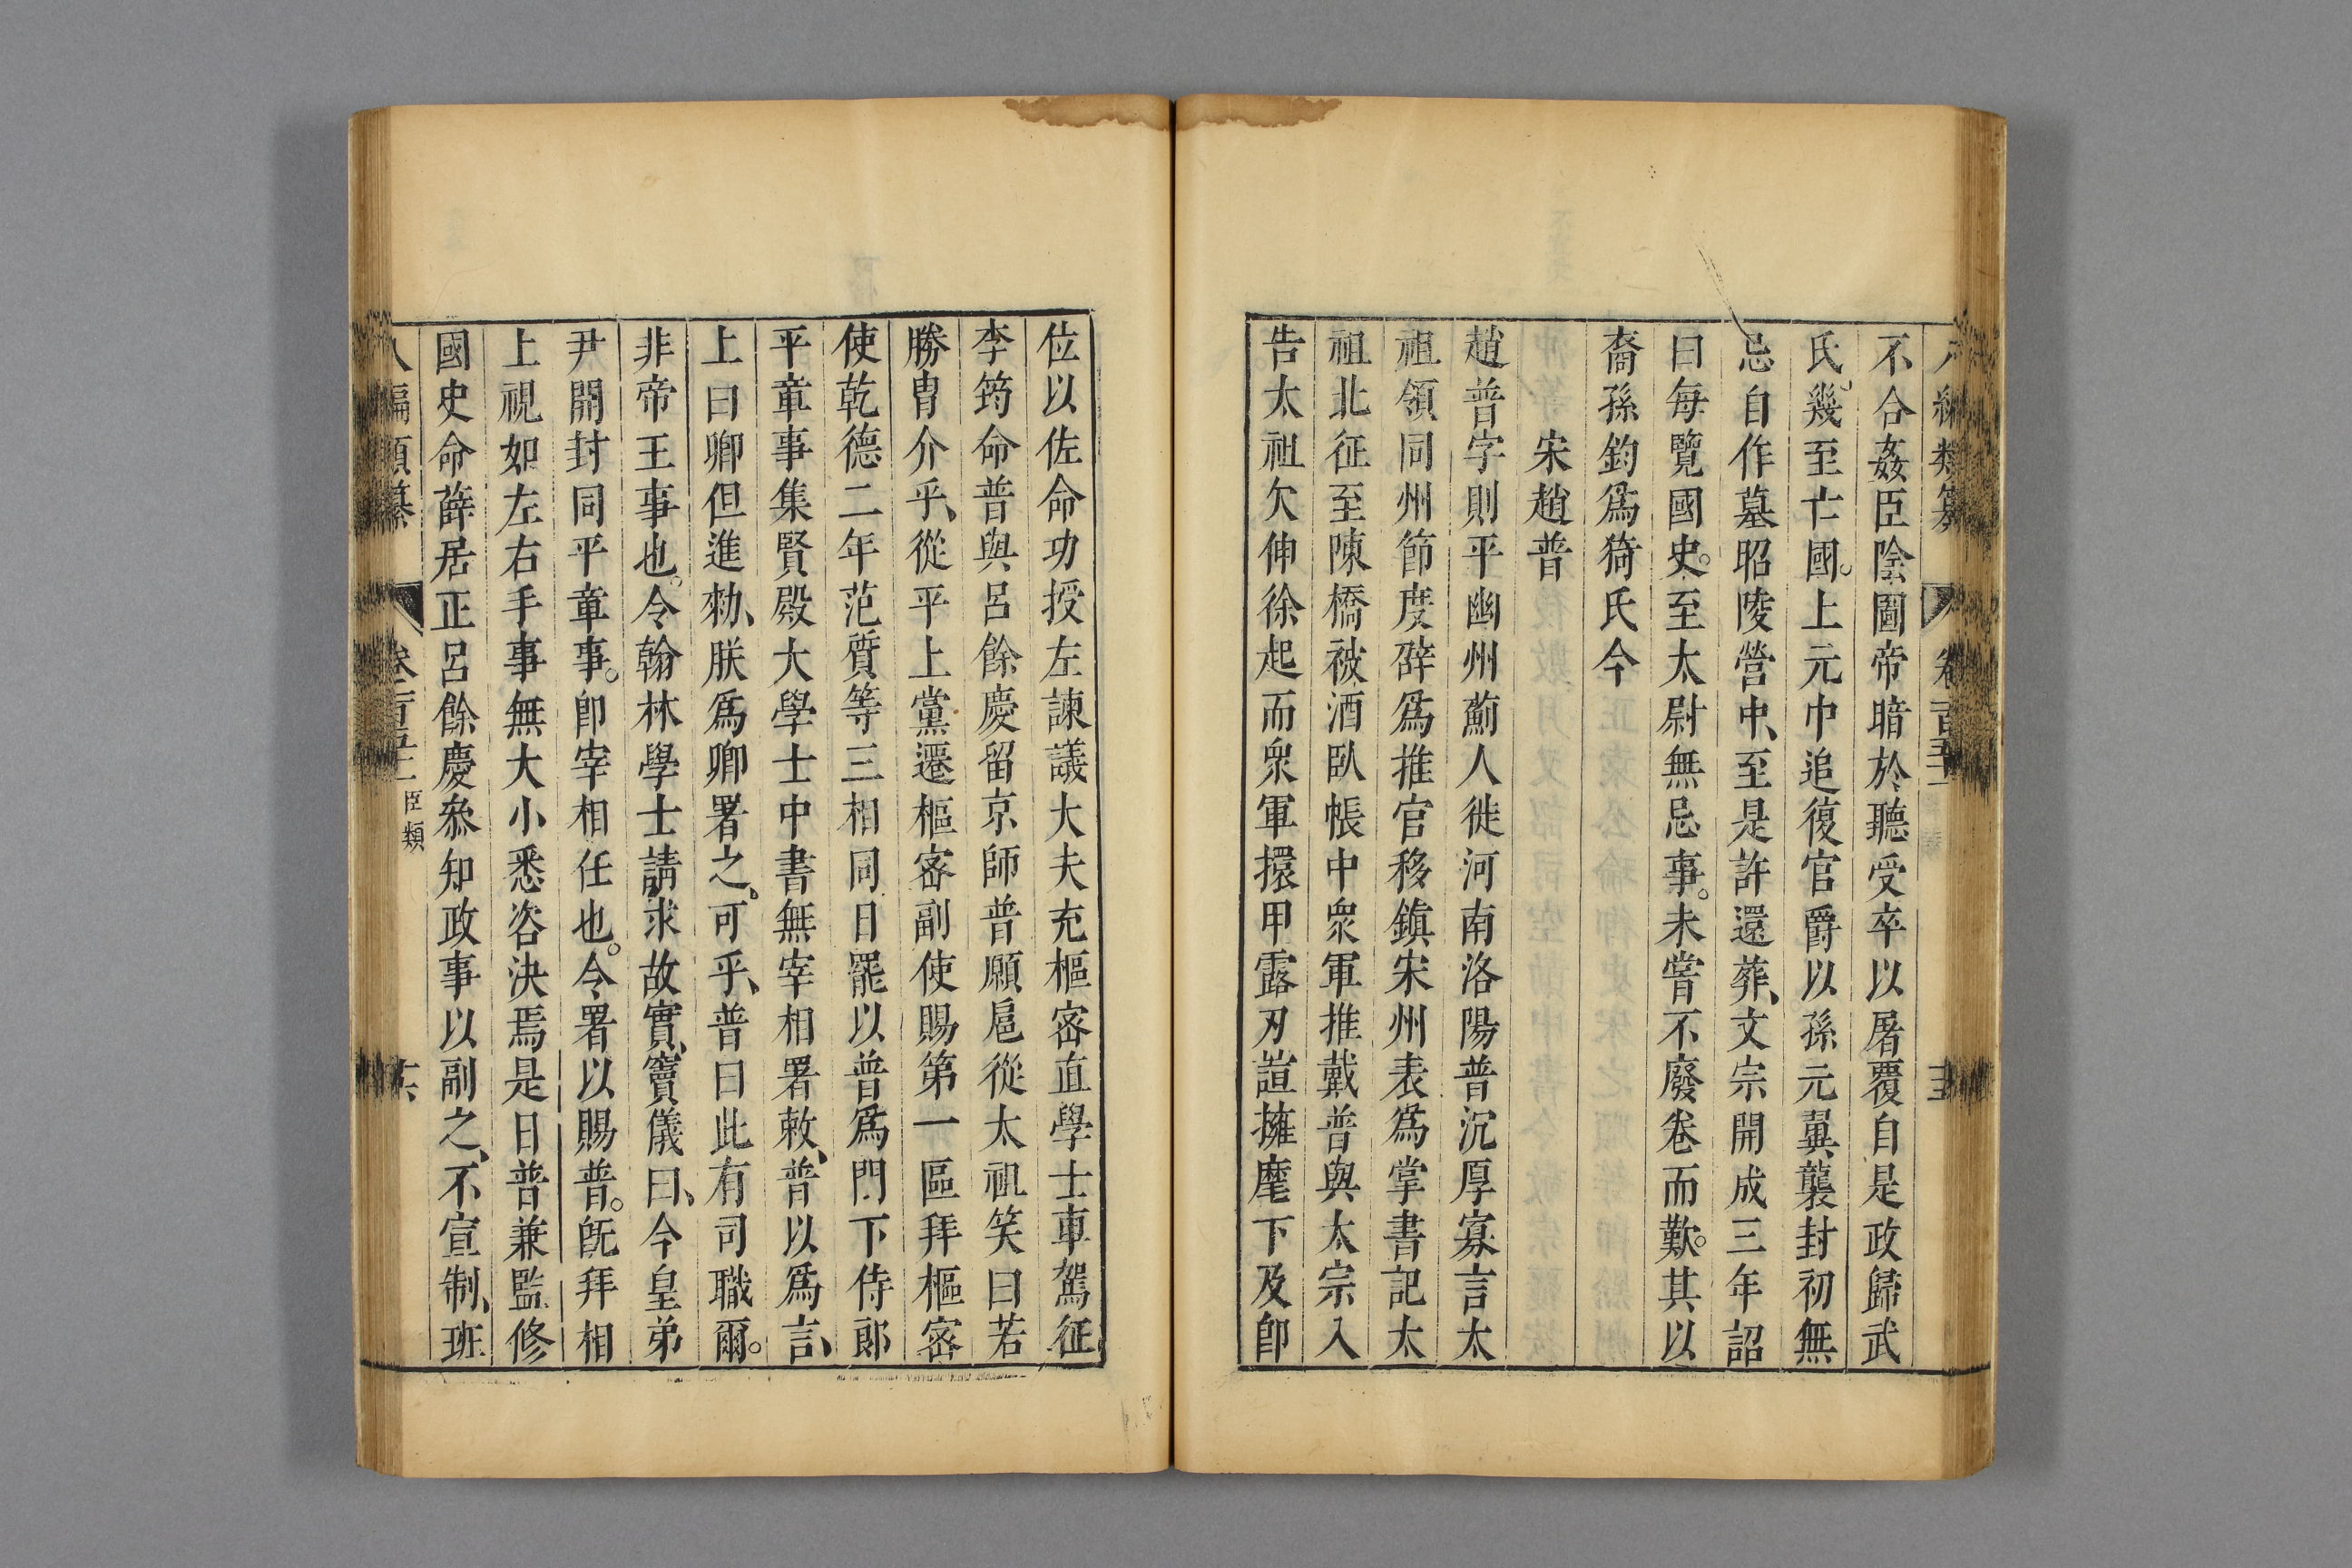 不合姦臣陰圖帝暗於聽受卒以屠覆自是政歸武
氏、幾至亡國。上元中追復官爵以孫元翼襲封初無
忌自作墓昭陵營中、至是許還葬、文宗開成三年詔
曰每覽國史。至太尉無忌事。未甞不廢卷而歎。其以
裔孫鈞爲猗氏令
宋趙普
趙普字則平幽州薊人徙河南洛陽普沉厚寡言太
祖領同州節度辟爲推官移鎮宋州表爲掌書記太
祖北征至陳橋被酒臥帳中衆軍推戴普與太宗入
告太祖欠伸徐起而衆軍擐甲露刃諠擁麾下及卽
位以佐命功授左諫議大夫充樞密直學士車駕征
李筠命普與呂餘慶留京師普願扈從太祖笑曰若
勝胄介乎、從平上黨遷樞密副使賜第一區拜樞密
使乾德二年范質等三相同日罷以普爲門下侍郎
平章事集賢殿大學士中書無宰相署敕、普以爲言、
上曰卿但進勑、朕爲卿署之、可乎、普曰此有司職爾。
非帝王事也。令翰林學士講求故實、竇儀曰、今皇弟
尹開封同平章事。卽宰相任也。令署以賜普。旣拜相
上視如左右手事無大小悉咨決焉是日普兼監修
國史命薛居正呂餘慶叅知政事以副之、不宣制、班
臣類